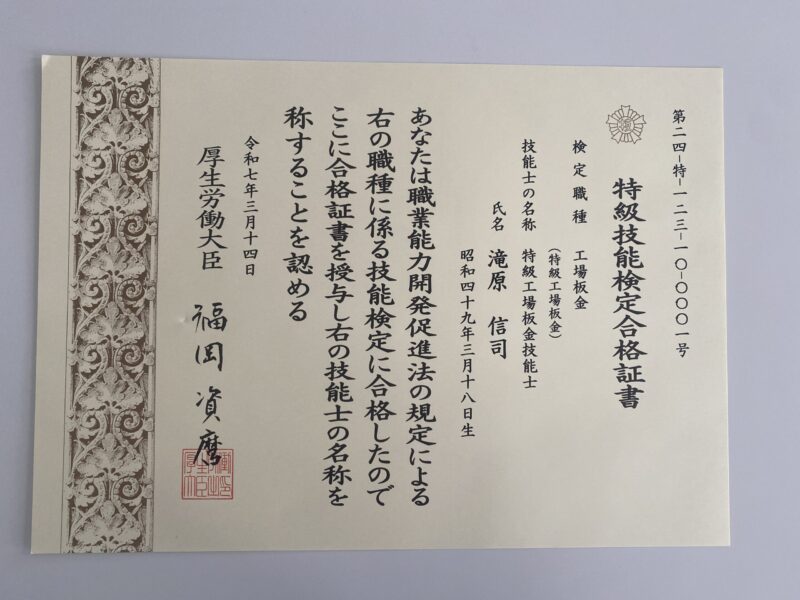 第二四-特-一二三-一〇-〇〇〇一号
特級技能検定合格証書
検定職種 工場板金
(特級工場板金)
技能士の名称 特級工場板金技能士
氏名 滝原 信司
昭和四十九年三月十八日生
あなたは職業能力開発促進法の規定による
右の職種に係る技能検定に合格したので
ここに合格証書を授与し右の技能士の名称を
称することを認める
令和七年三月十四日
厚生労働大臣 福岡 資麿